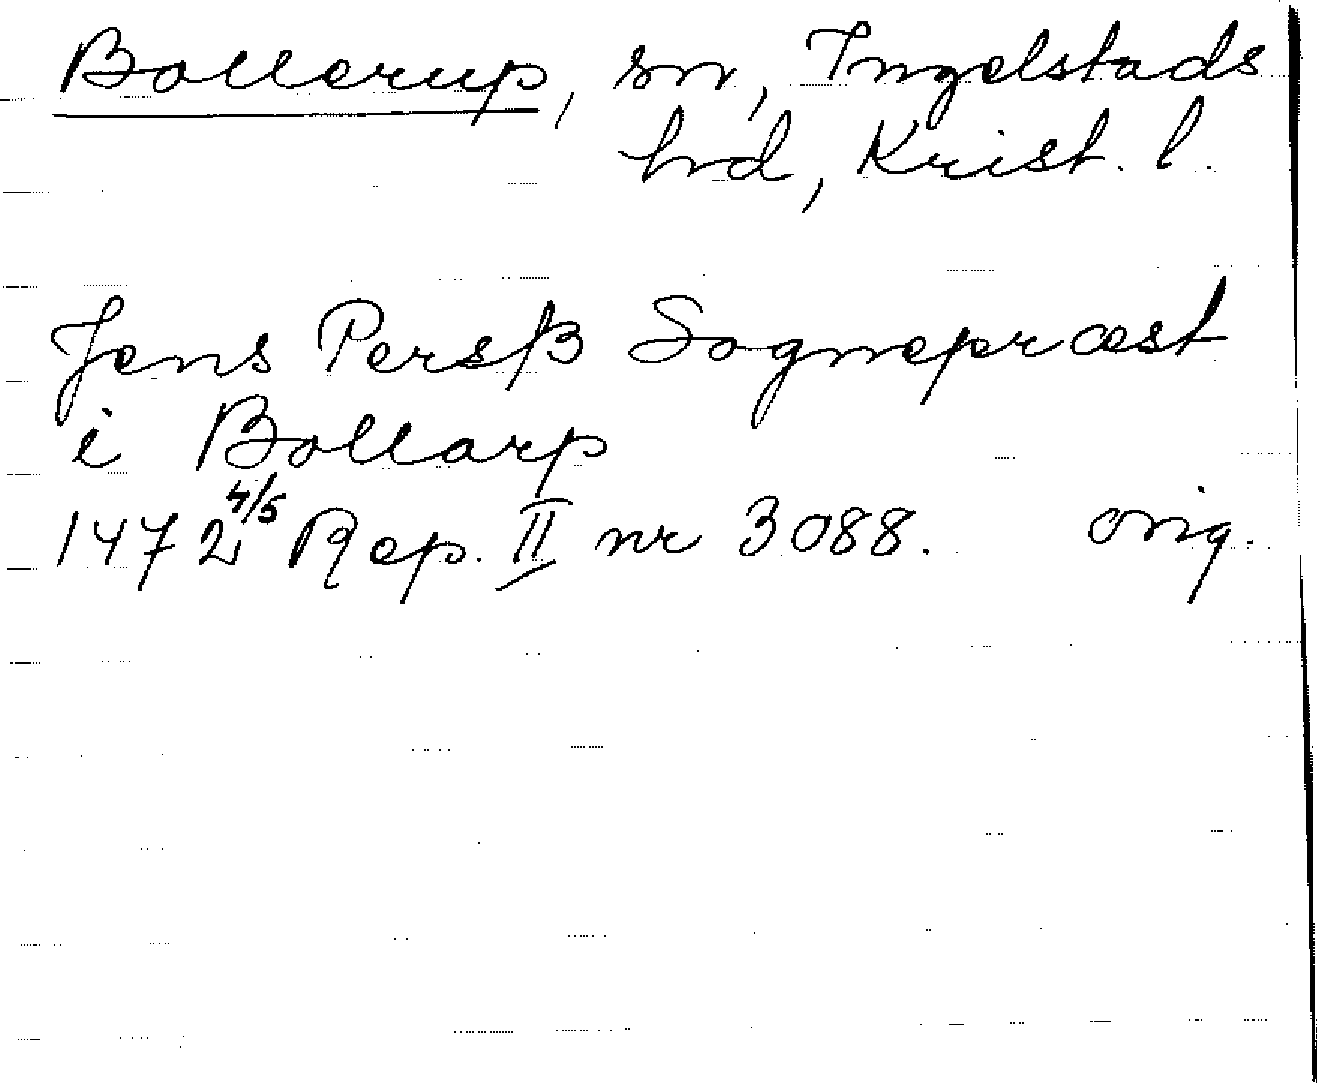 Bollerup, sn, Ingelstads
hrd, Krist. l.
Jens Persß Sognepræst
i Bollarp
1472 4/5 Rep. II nr 3088. orig.